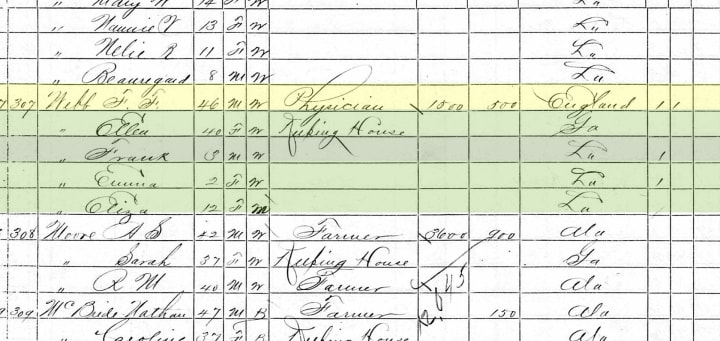 " Mary 14 F W La
" Nannie V 13 F W La
" Nelie R 11 F W La
" Beauregard 8 M W La
307 Webb F. F. 46 M W Physician 1500 500 England 1 1
" Ellen 40 F W Keeping House Ga
" Frank 3 M W La 1
" Emma 2 F W La 1
" Eliza 12 F M La
308 Moore A S 42 M W Farmer 3600 900 Ala
" Sarah 37 F W Keeping House Ga
" R M 40 M W Farmer Ala
309 McBride Nathan 47 M B Farmer 150 Ala
" Caroline 37 F B Keeping House Ala